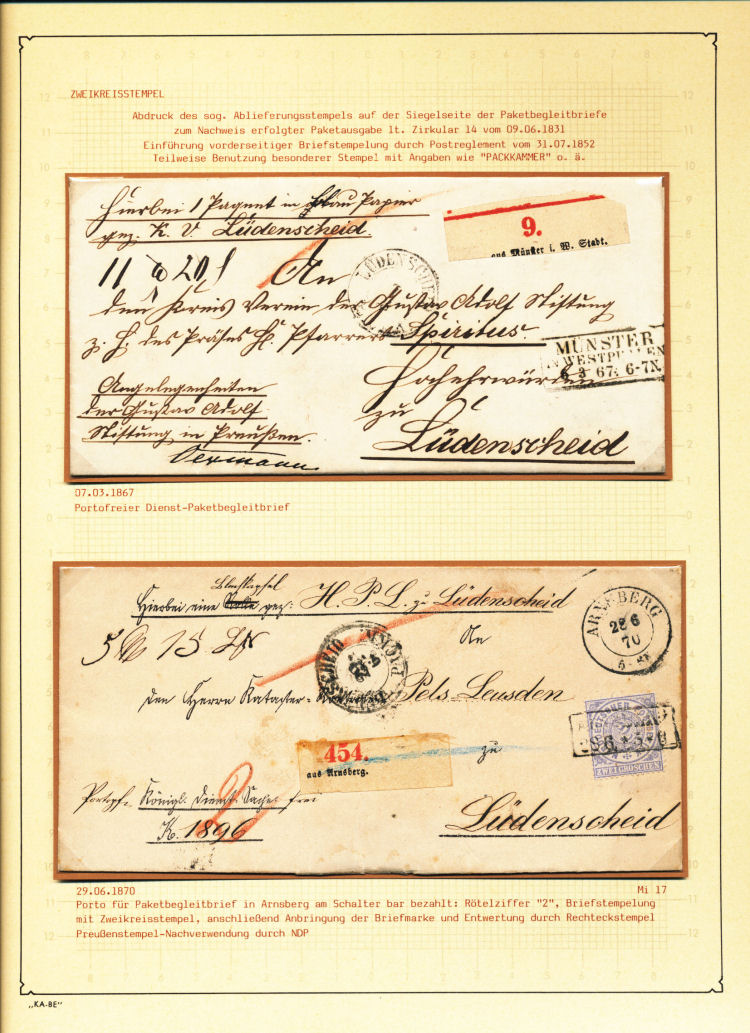 ZWEIKREISSTEMPEL
Abdruck des sog. Ablieferungsstempels auf der Siegelseite der Paketbegleitbriefe
zum Nachweis erfolgter Paketausgabe lt. Zirkular 14 vom 09.06.1831
Einführung vorderseitiger Briefstempelung durch Postreglement vom 31.07.1852
Teilweise Benutzung besonderer Stempel mit Angaben wie "PACKKAMMER" o. ä.
Hierbei 1 Paquet in blau Papier
gez. K. V. Lüdenscheid.
9.
aus Münster i. W. Stadt.
LÜDENSCHEID
An
den Kreis Verein der Gustav Adolf Stiftung
z. H. des Präses H. Pfarrer Spiritus.
MÜNSTER
IN WESTPHALEN
6 3 67. 6-7N.
Hochehrwürden
Angelegenheiten
der Gustav Adolf
Stiftung in Preußen.
zu
Lüdenscheid
07.03.1867
Portofreier Dienst-Paketbegleitbrief
Hierbei eine gez: H. P. L. z. Lüdenscheid
ARNSBERG
28 6
70
An
den Herrn Kataster- Pels-Leusden
454.
aus Arnsberg.
zu
ZWEI GROSCHEN
Königl. Dienst Sache frei
K. 1896
2
Lüdenscheid
29.06.1870
Mi 17
Porto für Paketbegleitbrief in Arnsberg am Schalter bar bezahlt: Rötelziffer "2", Briefstempelung
mit Zweikreisstempel, anschließend Anbringung der Briefmarke und Entwertung durch Rechteckstempel
Preußenstempel-Nachverwendung durch NDP
„KA-BE"